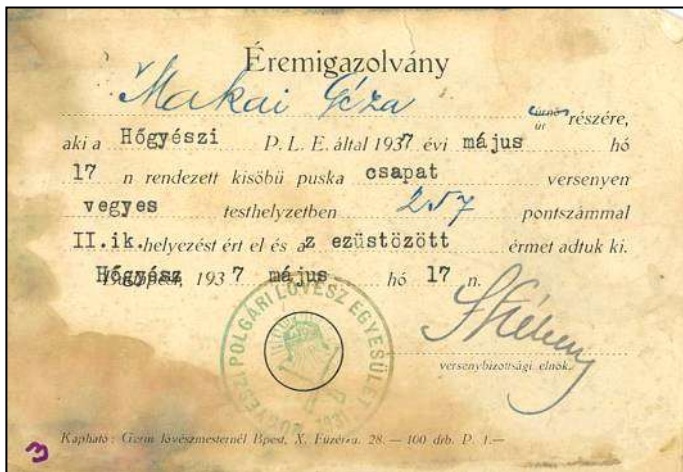 Éremigazolvány
Makai Géza úrnő úr részére,
aki a Hőgyészi P. L. E. által 1937 évi május hó
17 n rendezett kisöbü puska csapat versenyen
vegyes testhelyzetben 257 pontszámmal
II.ik. helyezést ért el és az ezüstözött érmet adtuk ki.
Hőgyész 1937 május hó 17 n.
POLGÁRI LÖVÉSZ EGYESÜLET
versenybizottsági elnök.
Kapható: Germ lövészmesternél Bpest, X. Füzér-u. 28. — 100 drb. P. 1.—
3